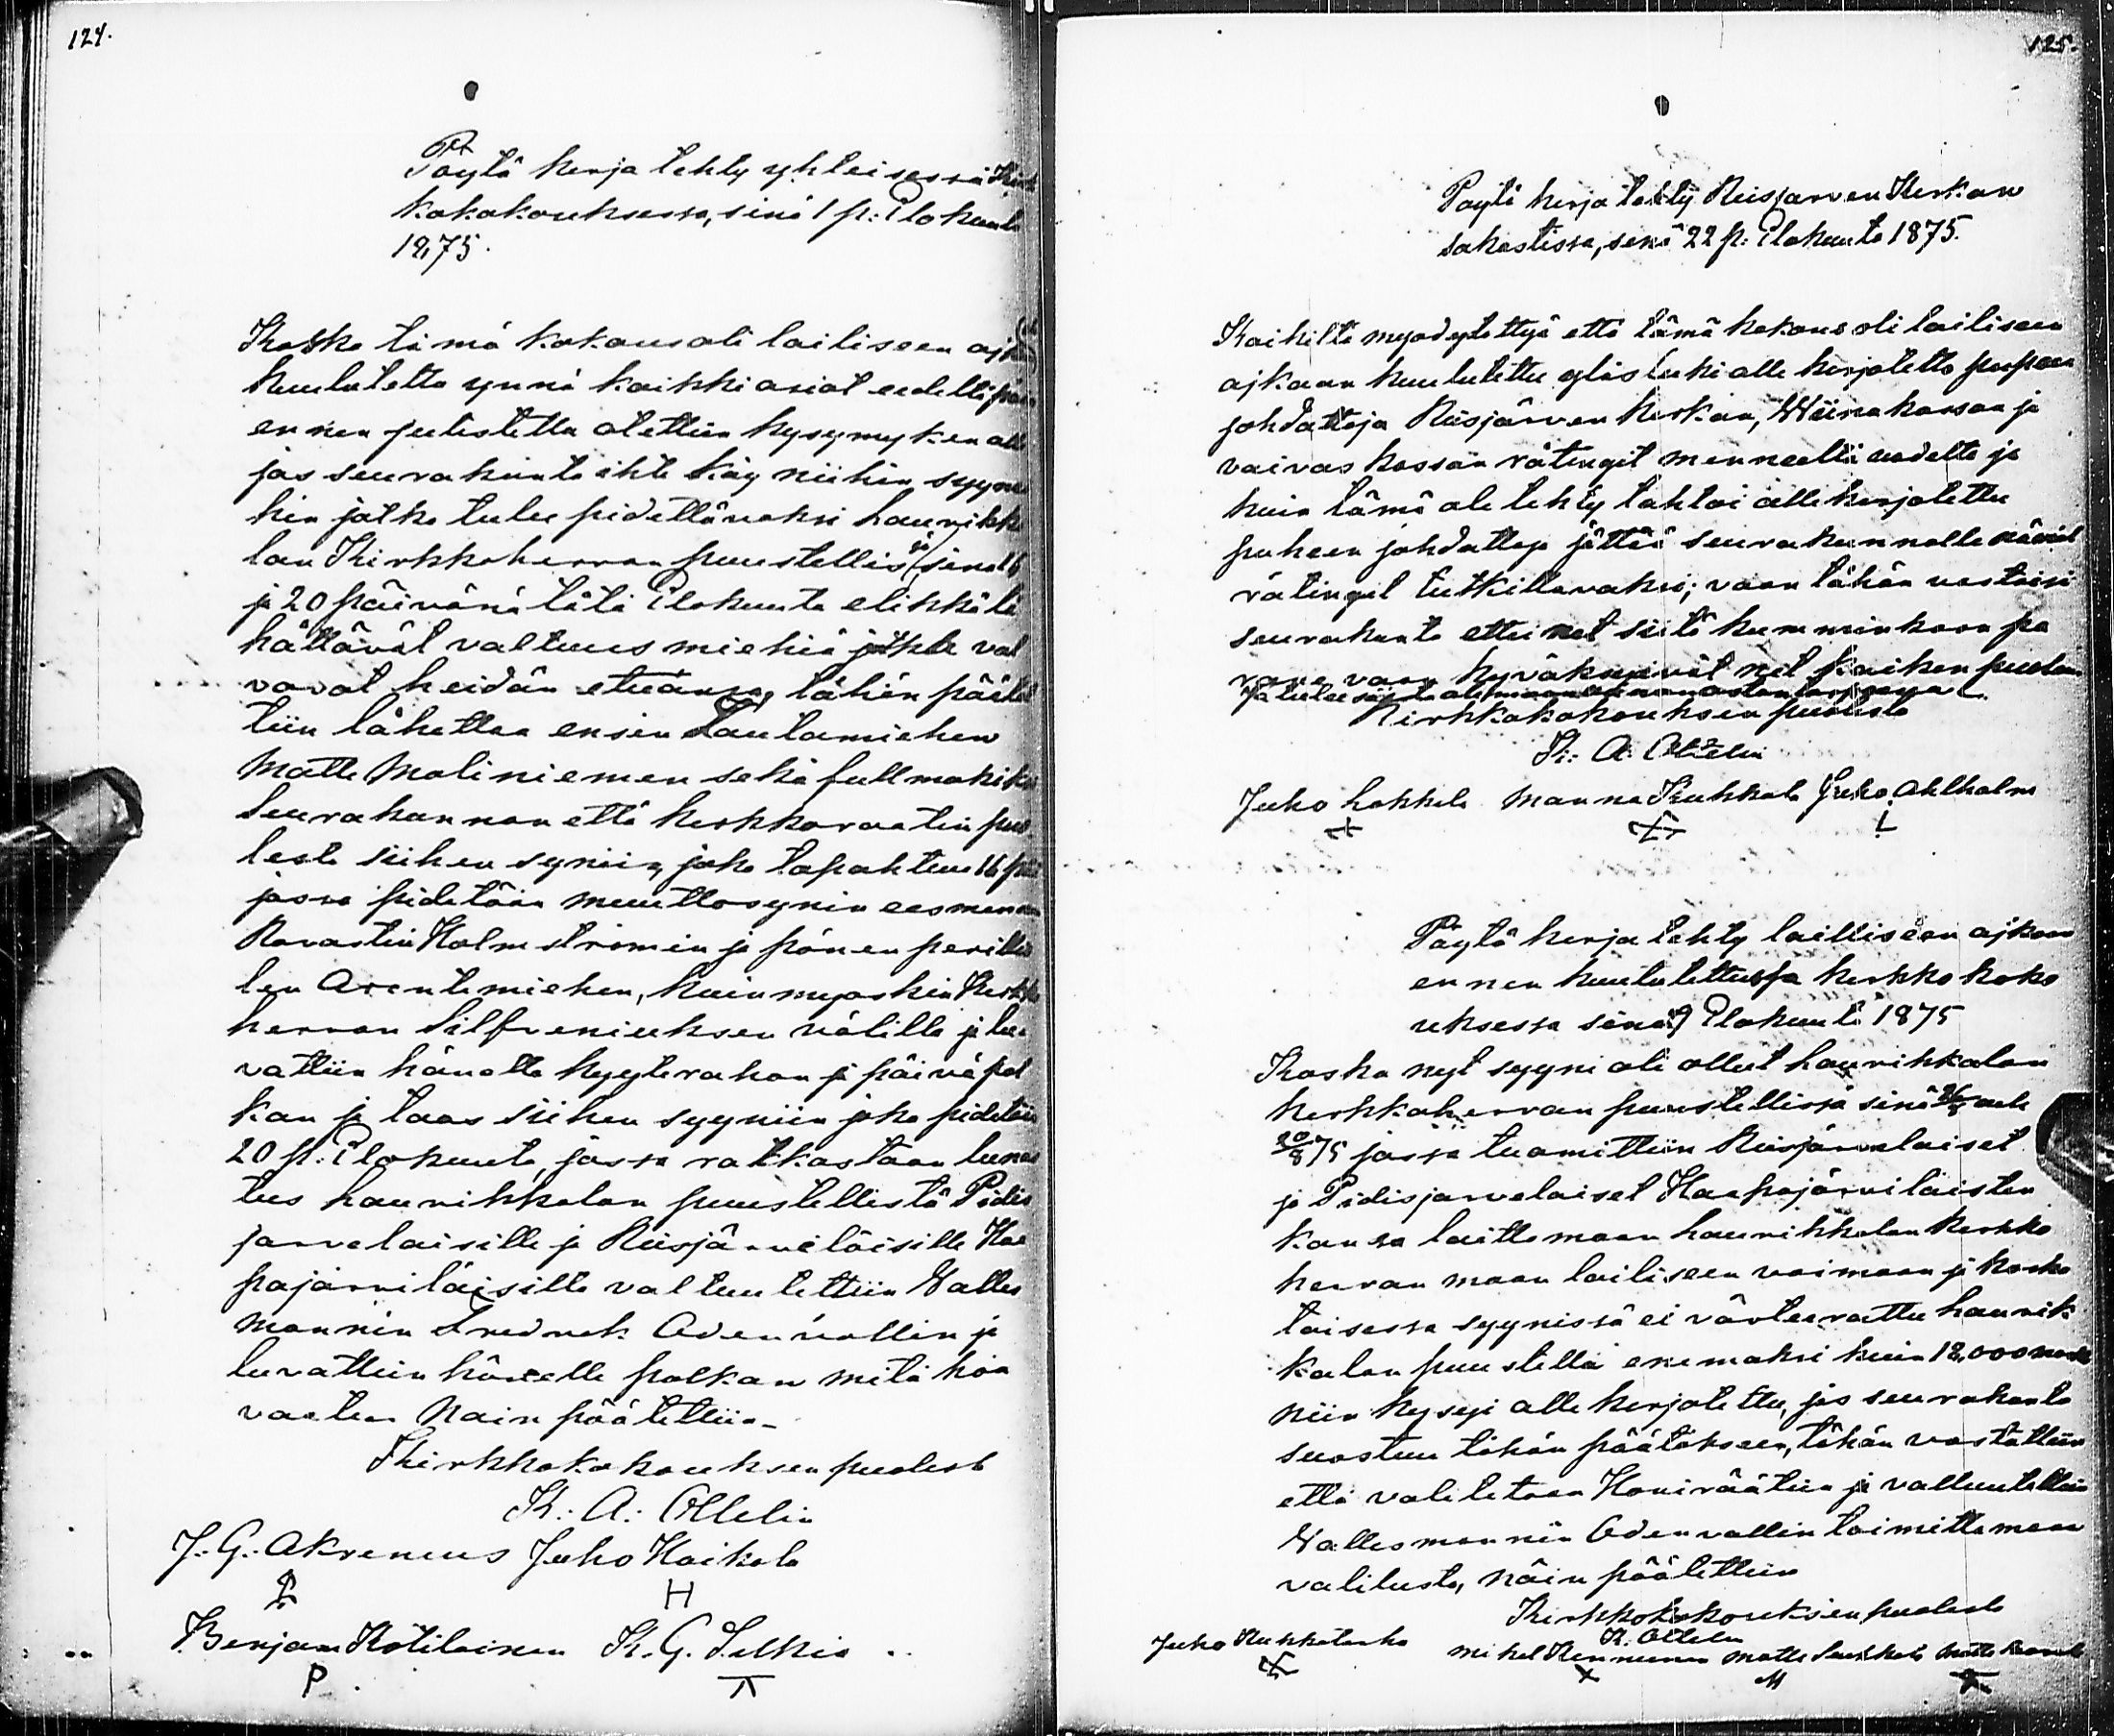 124.
Pöytä kerja tehty yhteisessä Kirk
kokokouksessa, sinä 1 p: Elokuuta
1875.
Koska tämä kokous oli lailiseen aj
kuulutettu ynnä kaikki asiat edelläpäin
ennen julistettu otettiin kysymyksen alle
jos seurakunta ihte käy niihin syyni
hin jotka tulee pidettäväksi haurikka
lan Kirkkoherran puustellissa sinä 16
ja 20 päivänä tätä Elokuuta elikkä lä
hättävät valtuus miehiä jotka val
vovat heidän etuänsä, tähän päätet
tiin lähettää ensin Lautamiehen
Matti Maliniemen sekä fullmahiksi
Seurakunnan että kerkkoraatin puo
lesta siihen syyniin, joka tapahtuu 16 päi
jossa pidetään muuttosynin eesmennen
Rovastin Holmströmin ja hänen perillis
ten Arentimiehen, kuin myoskin Kerkko
herran Silfveniuksen välillä ja lu
vattiin hänelle kyyterahan ja päivä pal
kan ja taas siihen syyniin joka pidetän
20 p: Elokuuta, jossa ratkastaan lunas
tus haurikkalan puustellistä Pidis
jarvelaisille ja Reisjärveläisille Haa
pajärviläisiltä valtuutettiin Valles
mannin Fredrek Adenvallin ja
luvattiin hänelle palkan mitä hän
vaatii Nain päätettiin
Kirkkokokouksen puolest
K: A: Ollelin
J: G: Akrenius Juho Haikola
H
Benjam Kotilainen K. G. Selkis
P
125.
Poytä kerja tehty Reisjarven Kerkon
sakastissa, senä 22 p: Elokuuta 1875.
Kaikilta myodytettyä että tämä kokous oli lailiseen
ajkaan kuulutettu ylös luki alle kirjotettu puheen
johdattaja Reisjärven kerkon, Wiinakassan ja
vaivas kassan rätingit menneeltä uodelta ja
kuin tämä ole tehty tahtoi alle kerjotettu
puheen johdattaja jättää seurakunnalle nämät
rätingit tutkittavaksi; vaan tähän vastaisi
seurakunta ettei net siitä kumminkaan pa
rane vaan hyväksyivät net kaiken puolen
Kirkkokokouksen puolesta
K: A: Ollelin
Juho Lokkela Manna Kukkola Juho Ahlholm
Pöytä kerja tehty lailliseen ajkaan
ennen kuulutettussa kerkko koko
uksessa sinä Elokuuta 1875
Koska nyt syyni oli ollut haurikkalan
kerkkoherran puustellissa sinä
20/8 75 jossa tuomittiin Reisjärvelaiset
ja Pidisjarvelaiset Haapajärviläisten
kansa laittamaan haurikkalan kerkko
herran maan lailiseen voimaan ja koska
toisessa syynissä ei värteerattu haurik
kalan puustellia enemäksi kuin 12,000 markk
niin kysyi alle kerjotettu, jos seurakunta
suostuu tähän päätökseen, tähän vastattiin
että valitetaan Hoviräätiin ja valtuutettiin
Vallesmannin Adenvallin toimittamaan
valitusta, näin päätettiin
Kerkkokokouksen puolesta
K. Ollelin
Juho Kukkotasko Mikel Kenneinen Matti Matti
M